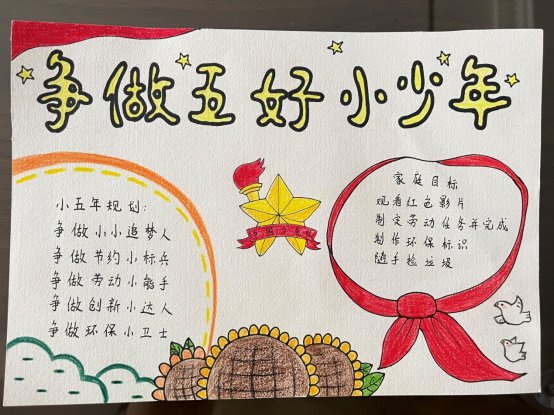 争做五好小少年
小五年规划:
争做小小追梦人
争做节约小标兵
争做劳动小能手
争做创新小达人
争做环保小卫士
家庭目标
观看红色影片
制定劳动任务并完成
制作环保标识
随手捡垃圾